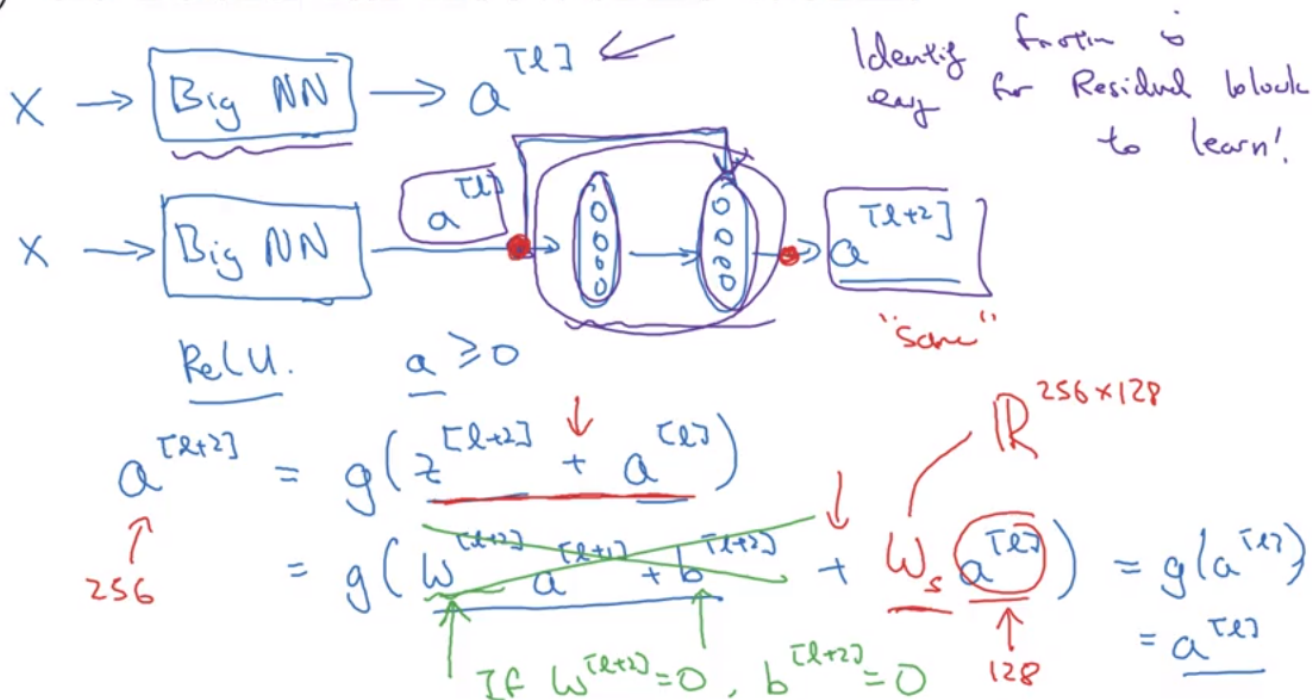 X → Big NN → a^[l] ←
Identity function is
easy for Residual block
to learn!
X → Big NN → a^[l] → → → a^[l+2]
"same"
ReLU. a ≥ 0
ℝ^256×128
a^[l+2] = g(z^[l+2] + a^[l])
256
= g(W^[l+2] a^[l+1] + b^[l+2] + W_s a^[l]) = g(a^[l])
= a^[l]
128
If W^[l+2]=0, b^[l+2]=0